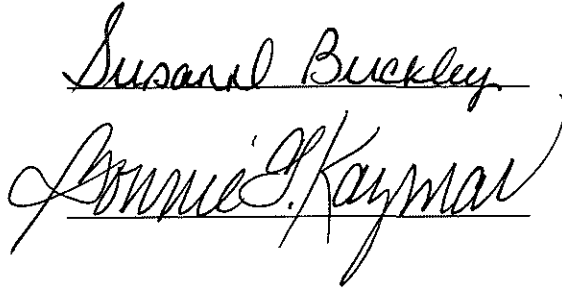 Susanne Buckley
Bonnie F. Kaymar